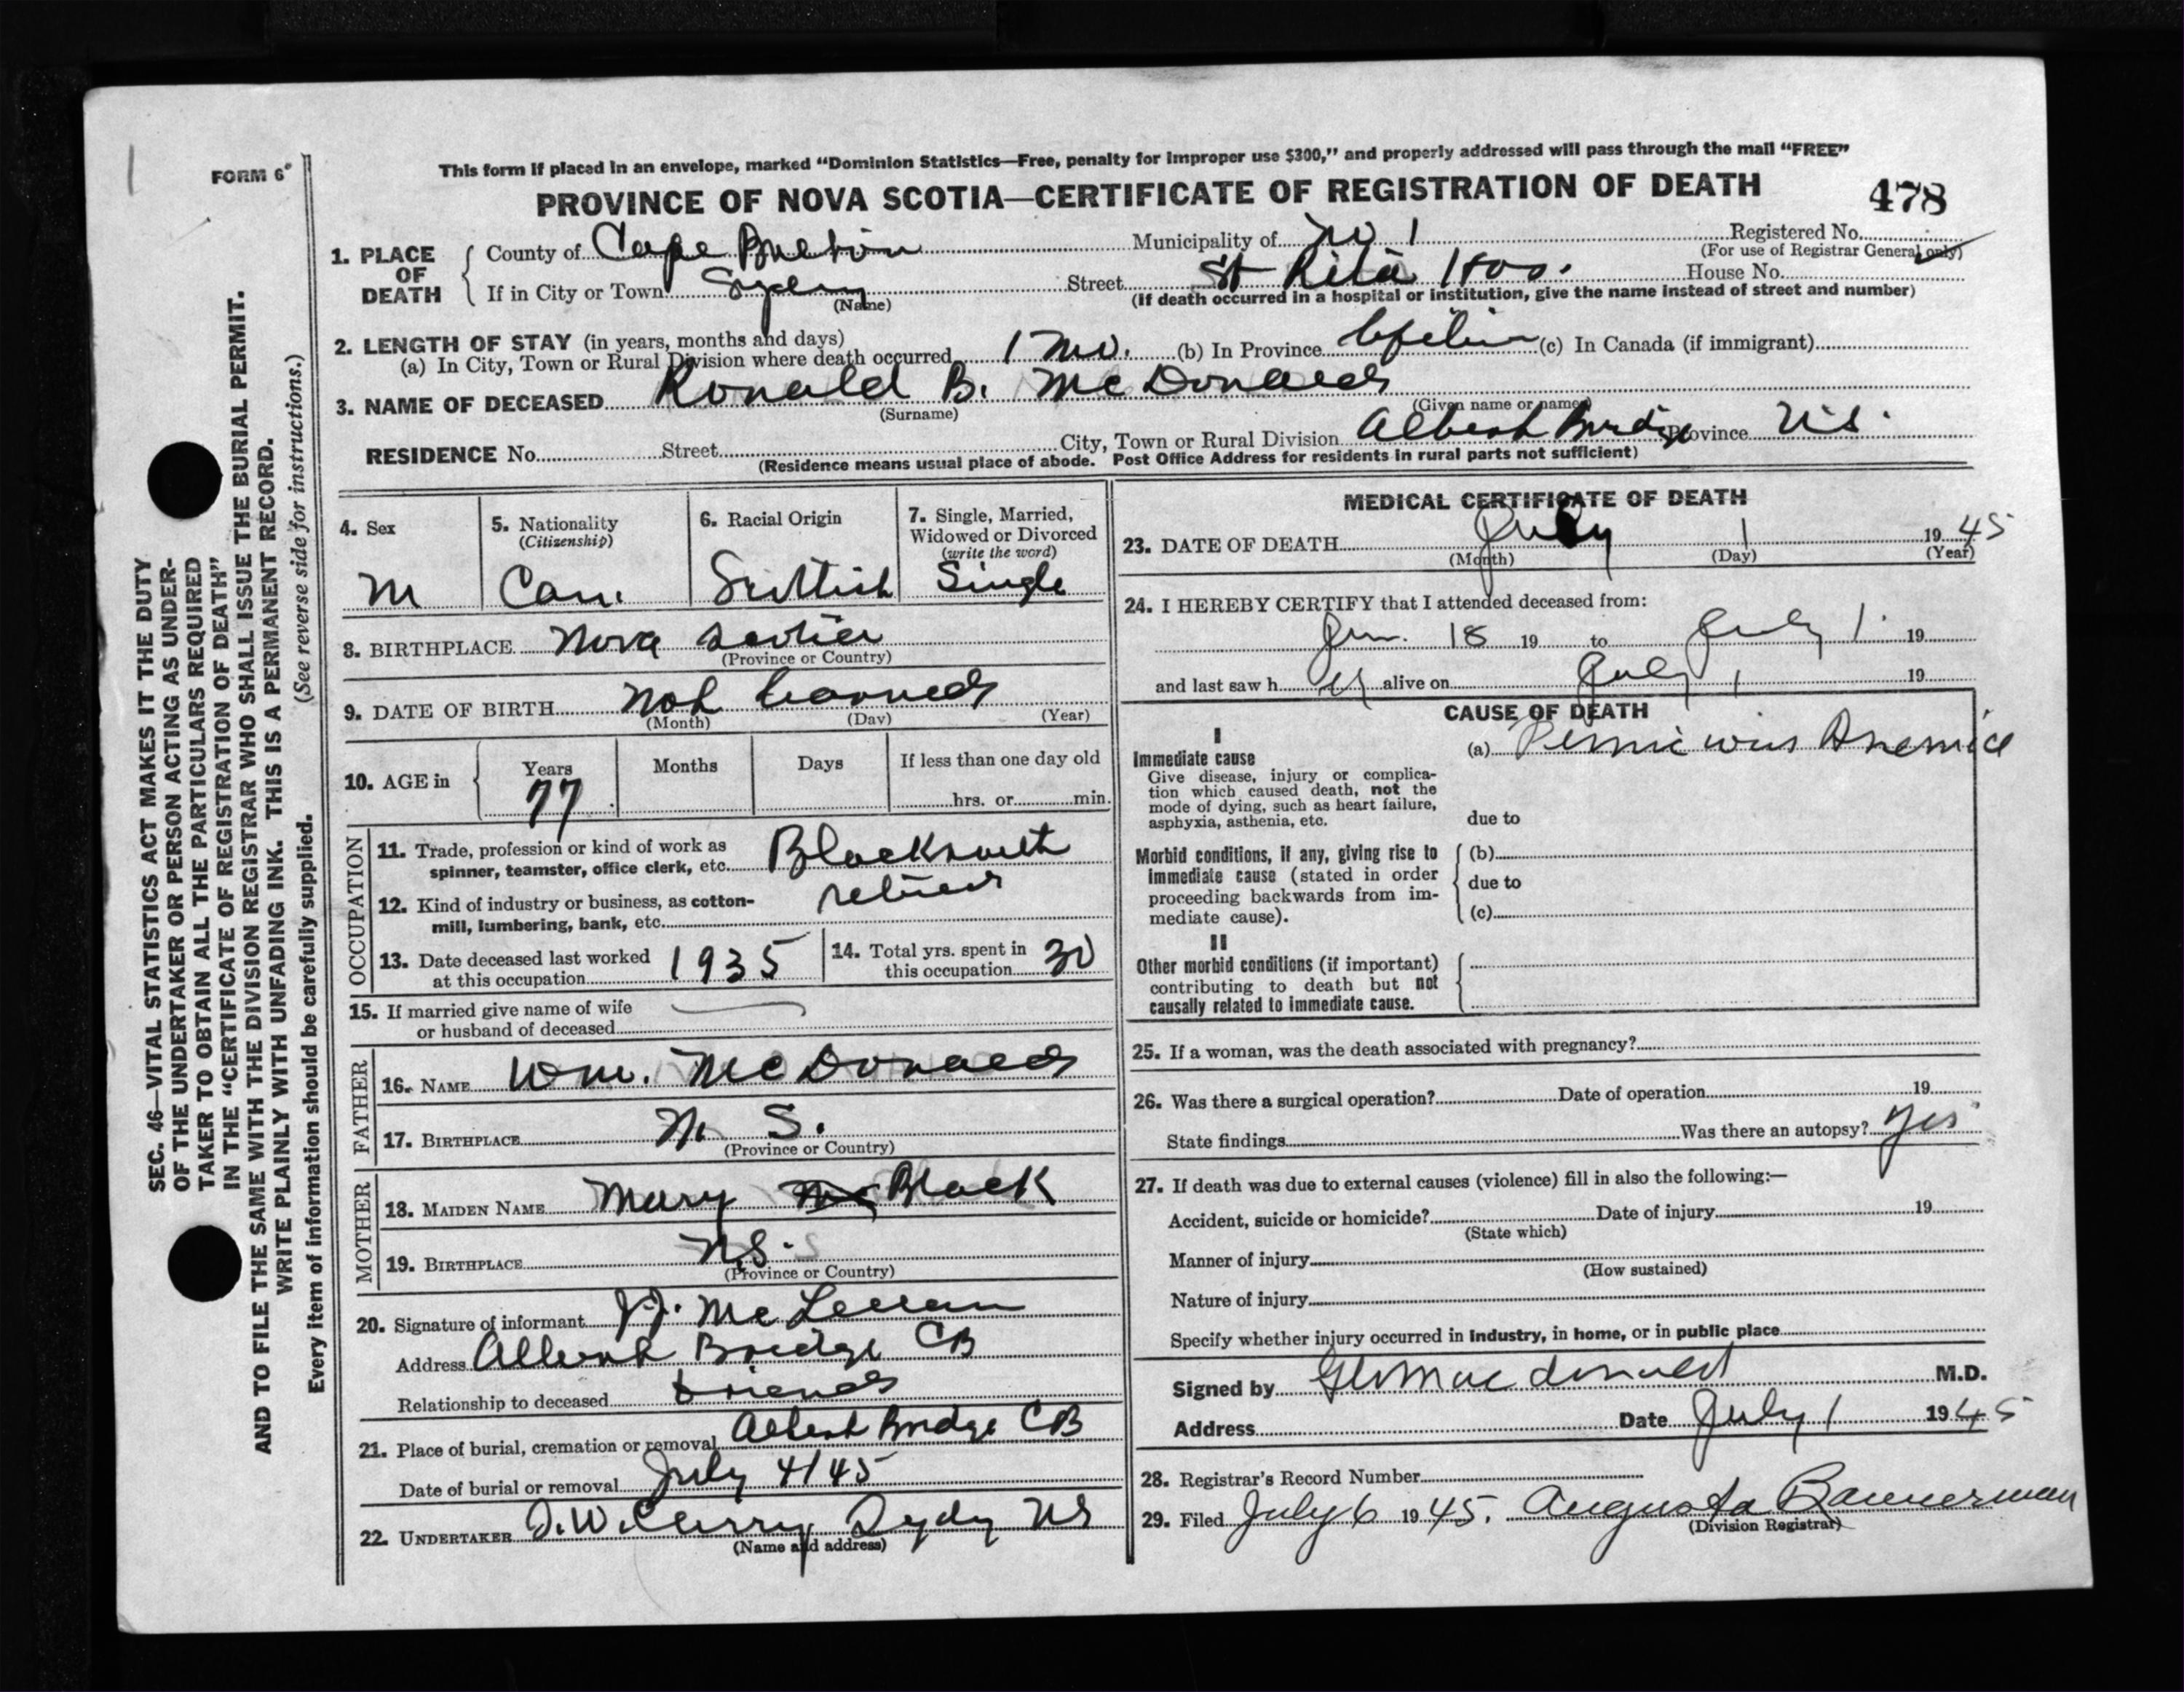 FORM 6
This form if placed in an envelope, marked “Dominion Statistics—Free, penalty for improper use $300,” and properly addressed will pass through the mail “FREE”
PROVINCE OF NOVA SCOTIA—CERTIFICATE OF REGISTRATION OF DEATH
478
1. PLACE OF DEATH
County of Cape Breton Municipality of No 1 Registered No.
(For use of Registrar General only)
If in City or Town Sydney Street St Rita Hos. House No.
(Name) (If death occurred in a hospital or institution, give the name instead of street and number)
2. LENGTH OF STAY (in years, months and days)
(a) In City, Town or Rural Division where death occurred 1 mo. (b) In Province Lifetime (c) In Canada (if immigrant)
3. NAME OF DECEASED Ronald B. McDonald
(Surname) (Given name or names)
RESIDENCE No. Street City, Town or Rural Division Albert Bridge Province N.S.
(Residence means usual place of abode. Post Office Address for residents in rural parts not sufficient)
4. Sex
M
5. Nationality
(Citizenship)
Can.
6. Racial Origin
Scottish
7. Single, Married,
Widowed or Divorced
(write the word)
Single
8. BIRTHPLACE Nova Scotia
(Province or Country)
9. DATE OF BIRTH Not
(Month) (Day) (Year)
10. AGE in
Years Months Days If less than one day old
77 hrs. or min.
OCCUPATION
11. Trade, profession or kind of work as
spinner, teamster, office clerk, etc. Blacksmith
12. Kind of industry or business, as cotton-
mill, lumbering, bank, etc. retired
13. Date deceased last worked
at this occupation 1935
14. Total yrs. spent in
this occupation 30
15. If married give name of wife
or husband of deceased
FATHER
16. NAME Wm. McDonald
17. BIRTHPLACE N. S.
(Province or Country)
MOTHER
18. MAIDEN NAME Mary Black
19. BIRTHPLACE N.S.
(Province or Country)
20. Signature of informant J. J. McLellan
Address Albert Bridge CB
Relationship to deceased friend
21. Place of burial, cremation or removal Albert Bridge CB
Date of burial or removal July 4/45
22. UNDERTAKER J. W. Curry Sydney NS
(Name and address)
MEDICAL CERTIFICATE OF DEATH
23. DATE OF DEATH July 1 1945
(Month) (Day) (Year)
24. I HEREBY CERTIFY that I attended deceased from:
Jun. 18 19 to July 1 19
and last saw h alive on July 1 19
CAUSE OF DEATH
I
Immediate cause
Give disease, injury or complica-
tion which caused death, not the
mode of dying, such as heart failure,
asphyxia, asthenia, etc.
(a) Pernicious Anemia
due to
Morbid conditions, if any, giving rise to
immediate cause (stated in order
proceeding backwards from im-
mediate cause).
(b)
due to
(c)
II
Other morbid conditions (if important)
contributing to death but not
causally related to immediate cause.
25. If a woman, was the death associated with pregnancy?
26. Was there a surgical operation? Date of operation 19
State findings Was there an autopsy? yes
27. If death was due to external causes (violence) fill in also the following:—
Accident, suicide or homicide? Date of injury 19
(State which)
Manner of injury
(How sustained)
Nature of injury
Specify whether injury occurred in industry, in home, or in public place
Signed by Macdonald M.D.
Address Date July 1 1945
28. Registrar's Record Number
29. Filed July 6 1945. Augusta Bannerman
(Division Registrar)
SEC. 46—VITAL STATISTICS ACT MAKES IT THE DUTY
OF THE UNDERTAKER OR PERSON ACTING AS UNDER-
TAKER TO OBTAIN ALL THE PARTICULARS REQUIRED
IN THE “CERTIFICATE OF REGISTRATION OF DEATH”
AND TO FILE THE SAME WITH THE DIVISION REGISTRAR WHO SHALL ISSUE THE BURIAL PERMIT.
WRITE PLAINLY WITH UNFADING INK. THIS IS A PERMANENT RECORD.
Every item of information should be carefully supplied. (See reverse side for instructions.)